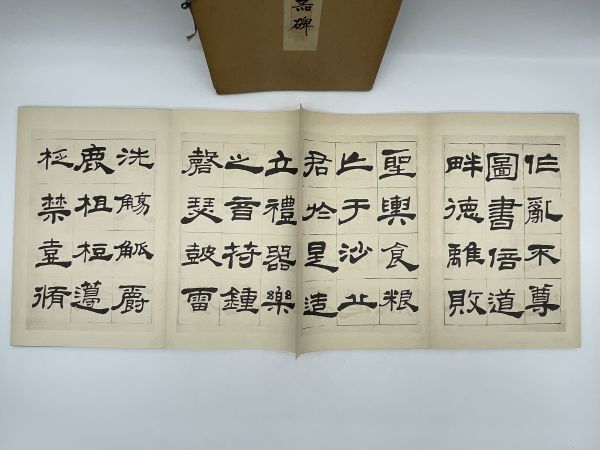 器碑
作亂不尊
圖書倍道
畔德離敗
聖輿食粮
亡于沙丘
君於是造
立禮器樂
之音符鍾
磬瑟鼓雷
洗觴觚爵
鹿柤梪籩
柉禁壺脩